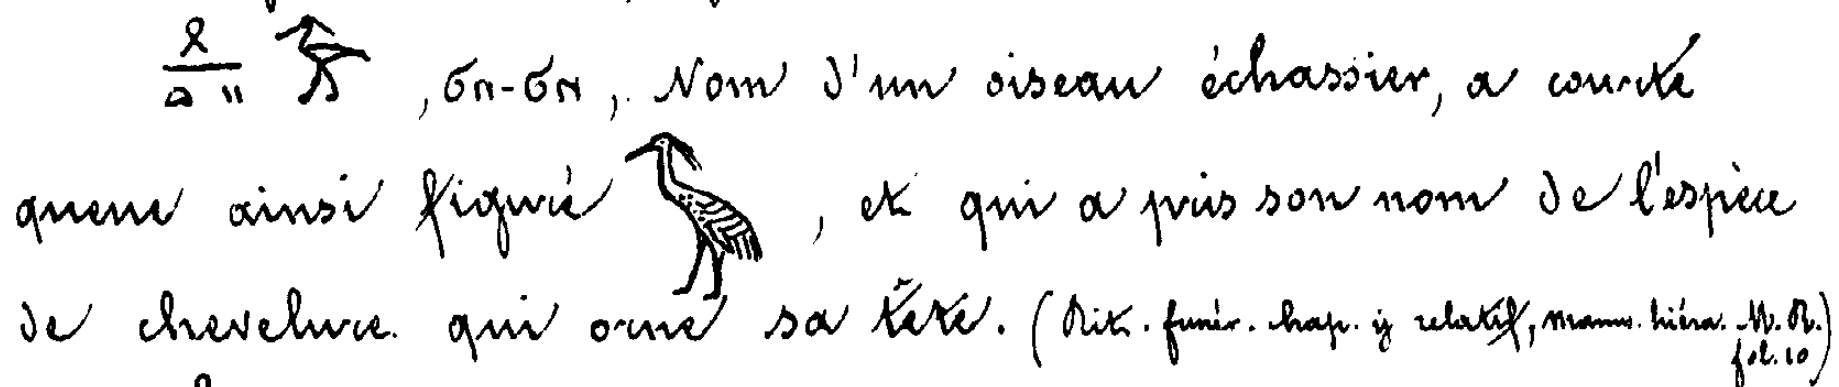 , ϭⲡ-ϭⲛ, Nom d'un oiseau échassier, a courte
queue ainsi figuré , et qui a pris son nom de l'espèce
de chevelure. qui orne sa tête. (Rit. funér. chap. y relatif, manus. hiéra. M. R.
fol. 10)